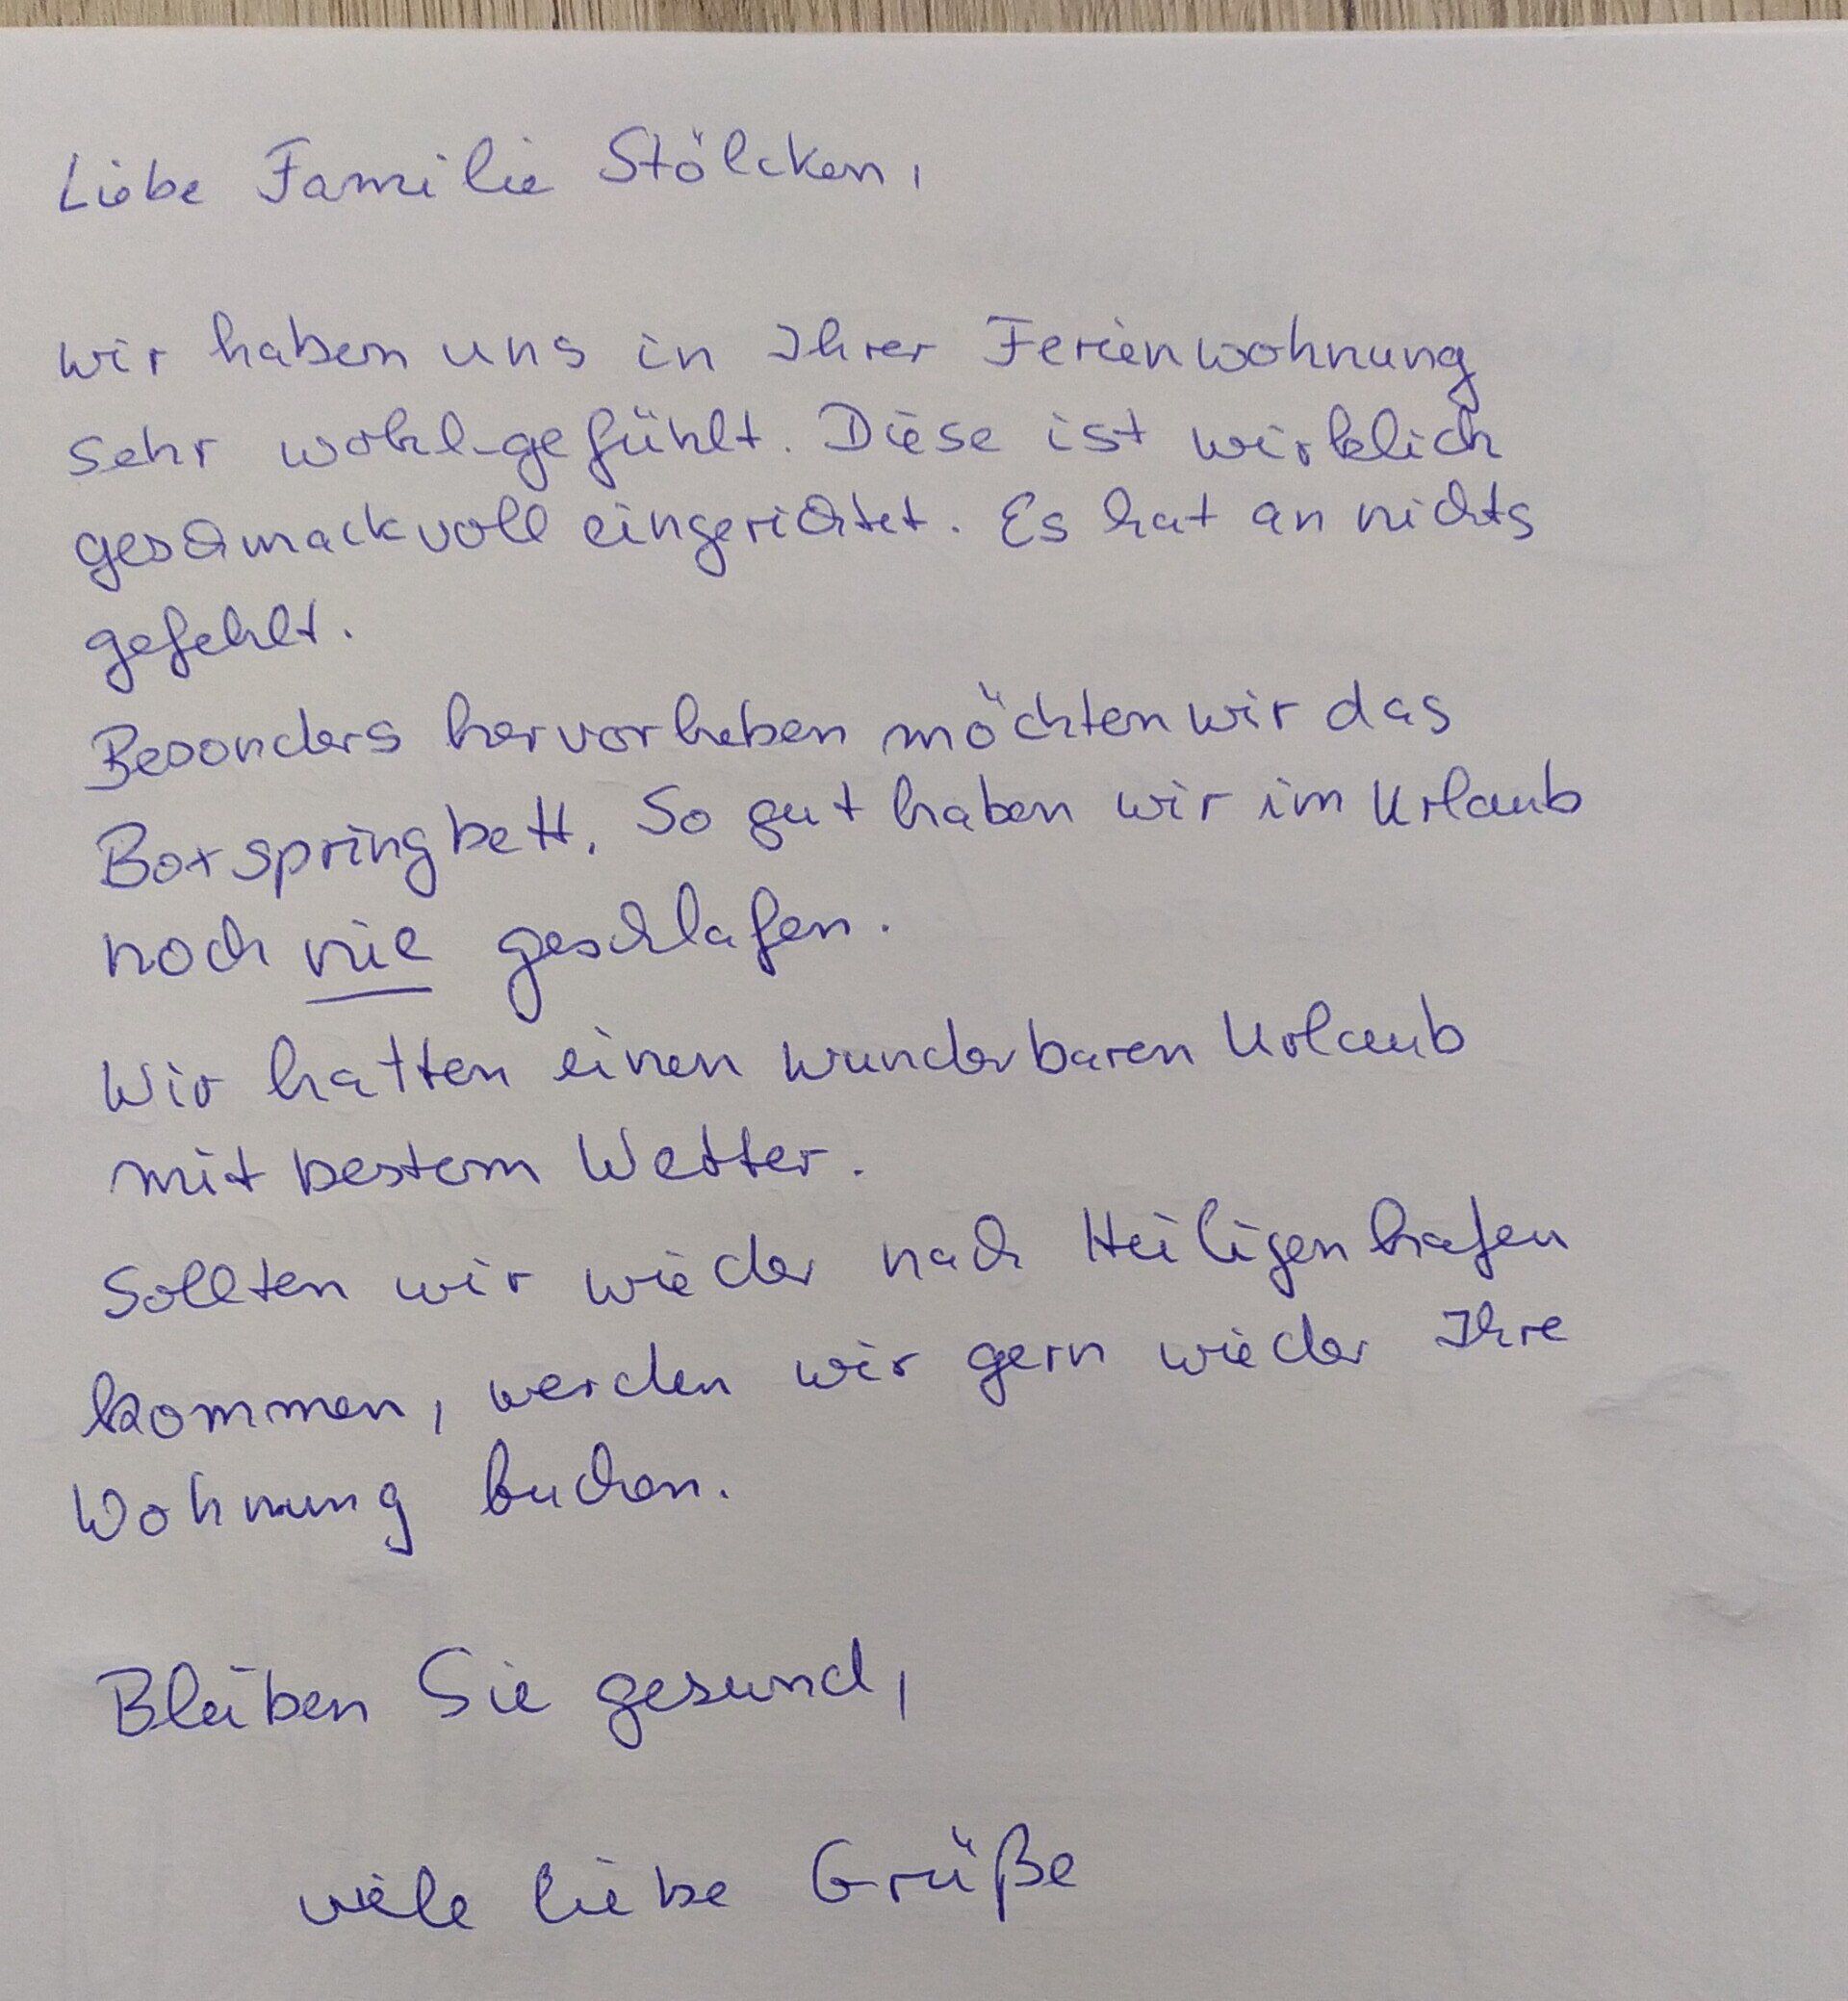 Liebe Familie Stölcken,
wir haben uns in Ihrer Ferienwohnung
sehr wohl-gefühlt. Diese ist wirklich
geschmackvoll eingerichtet. Es hat an nichts
gefehlt.
Besonders hervorheben möchten wir das
Boxspringbett. So gut haben wir im Urlaub
noch nie geschlafen.
Wir hatten einen wunderbaren Urlaub
mit bestem Wetter.
Sollten wir wieder nach Heiligenhafen
kommen, werden wir gern wieder Ihre
Wohnung buchen.
Bleiben Sie gesund,
viele liebe Grüße